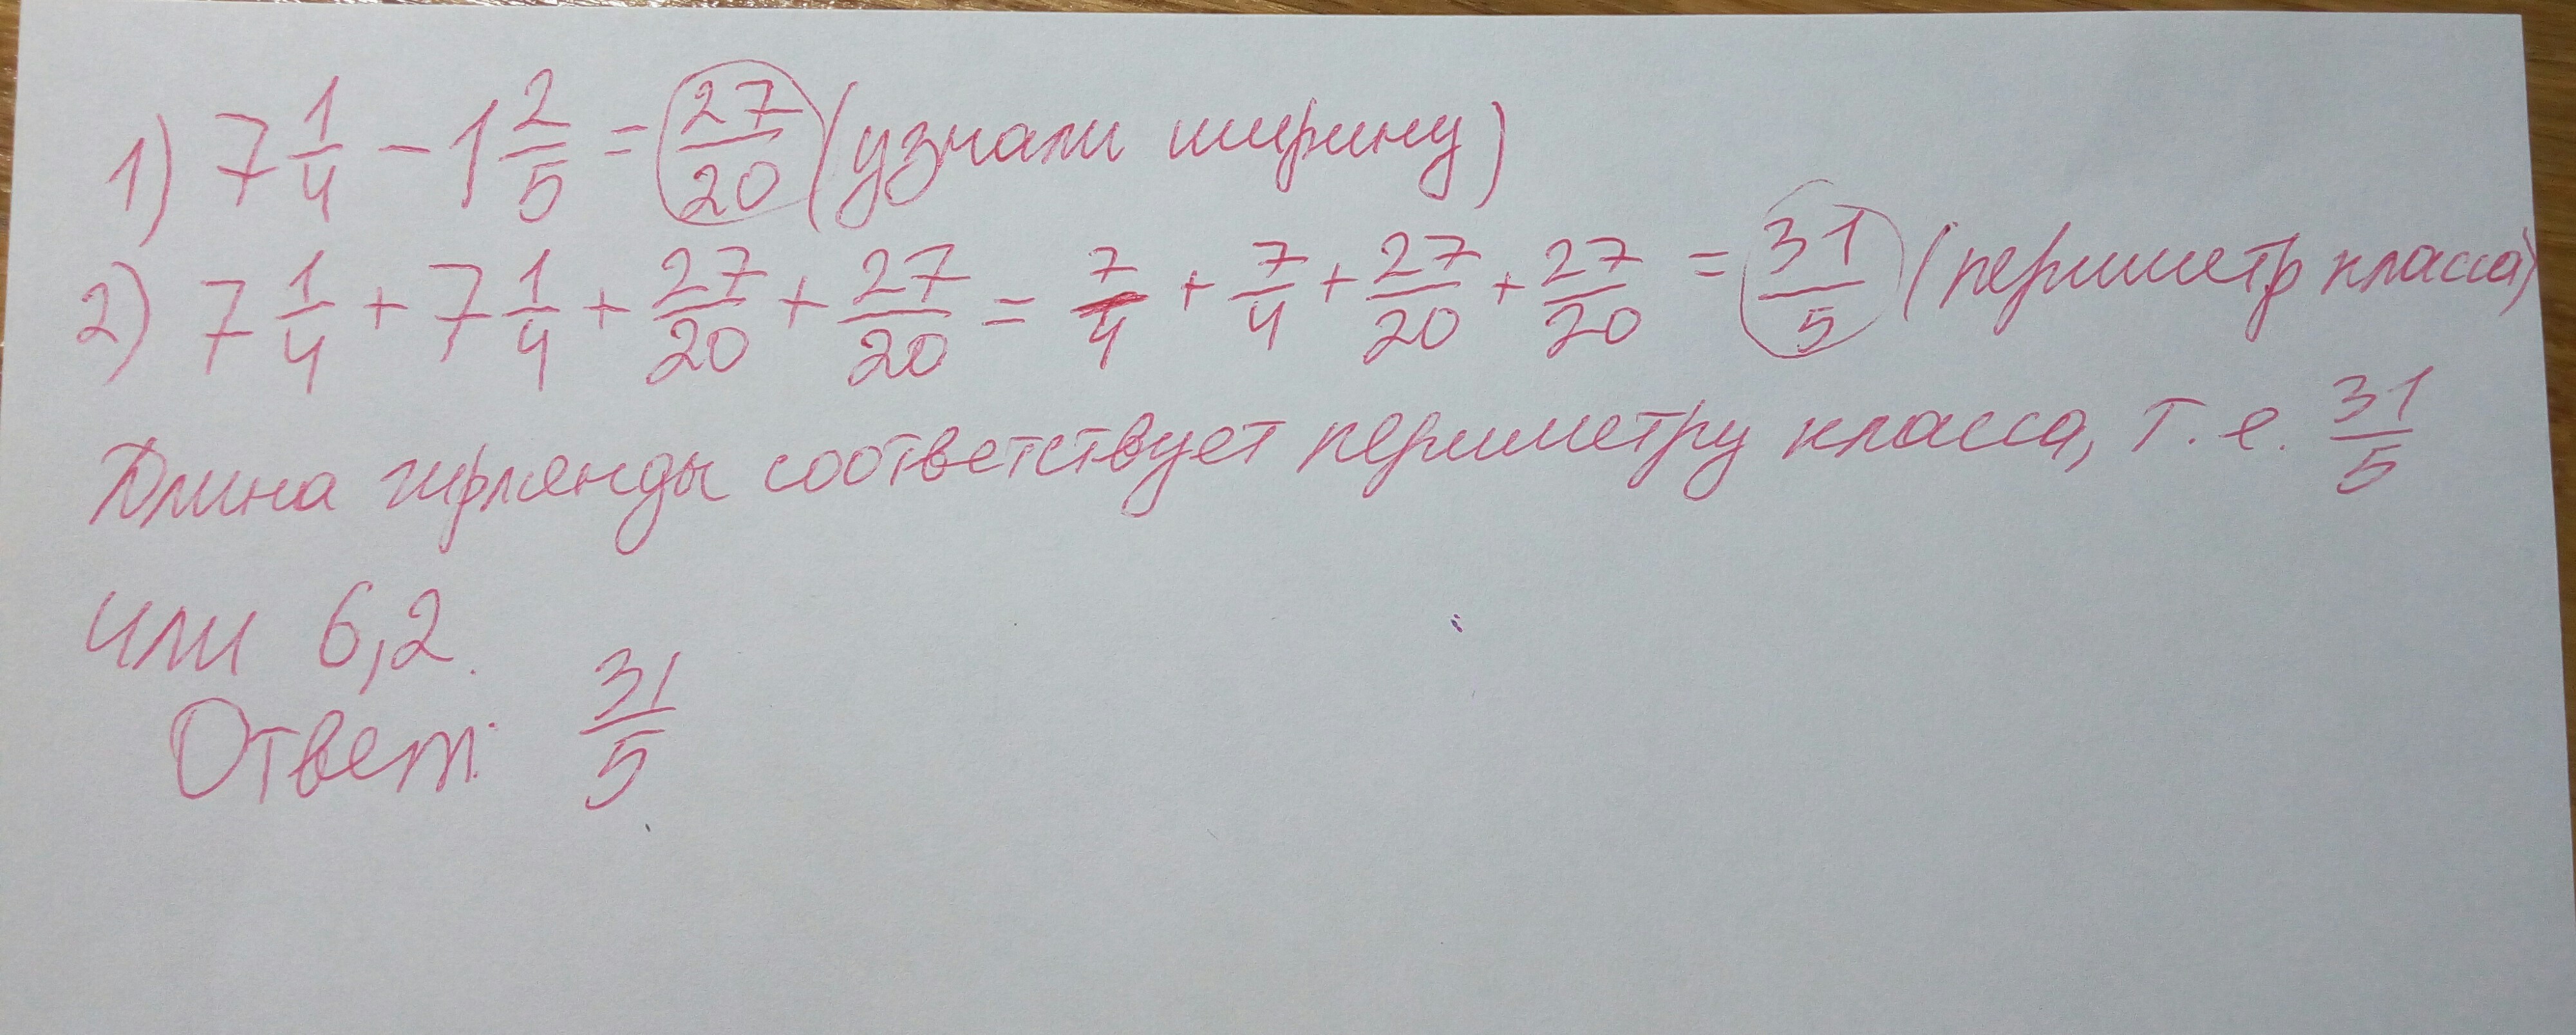 1) 7 1/4 - 1 2/5 = 27/20 (узнали ширину)
2) 7 1/4 + 7 1/4 + 27/20 + 27/20 = 7/4 + 7/4 + 27/20 + 27/20 = 31/5 (периметр класса)
Длина гирлянды соответствует периметру класса, т.е. 31/5
или 6,2.
Ответ: 31/5